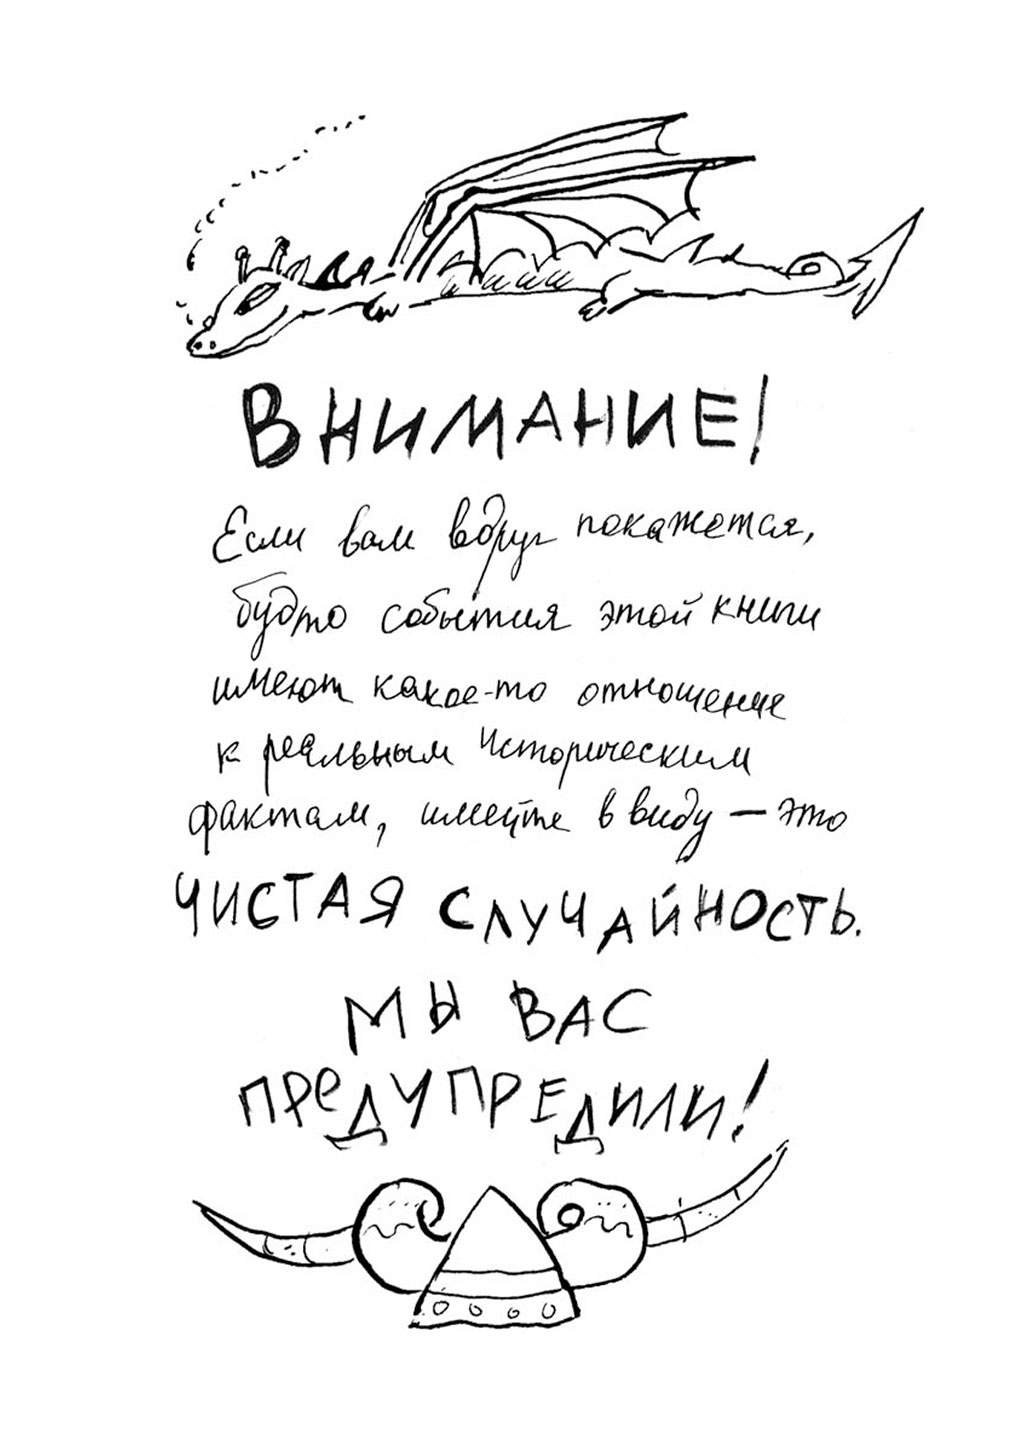 ВНИМАНИЕ!
Если вам вдруг покажется,
будто события этой книги
имеют какое-то отношение
к реальным историческим
фактам, имейте в виду — это
ЧИСТАЯ СЛУЧАЙНОСТЬ.
МЫ ВАС
ПРЕДУПРЕДИЛИ!